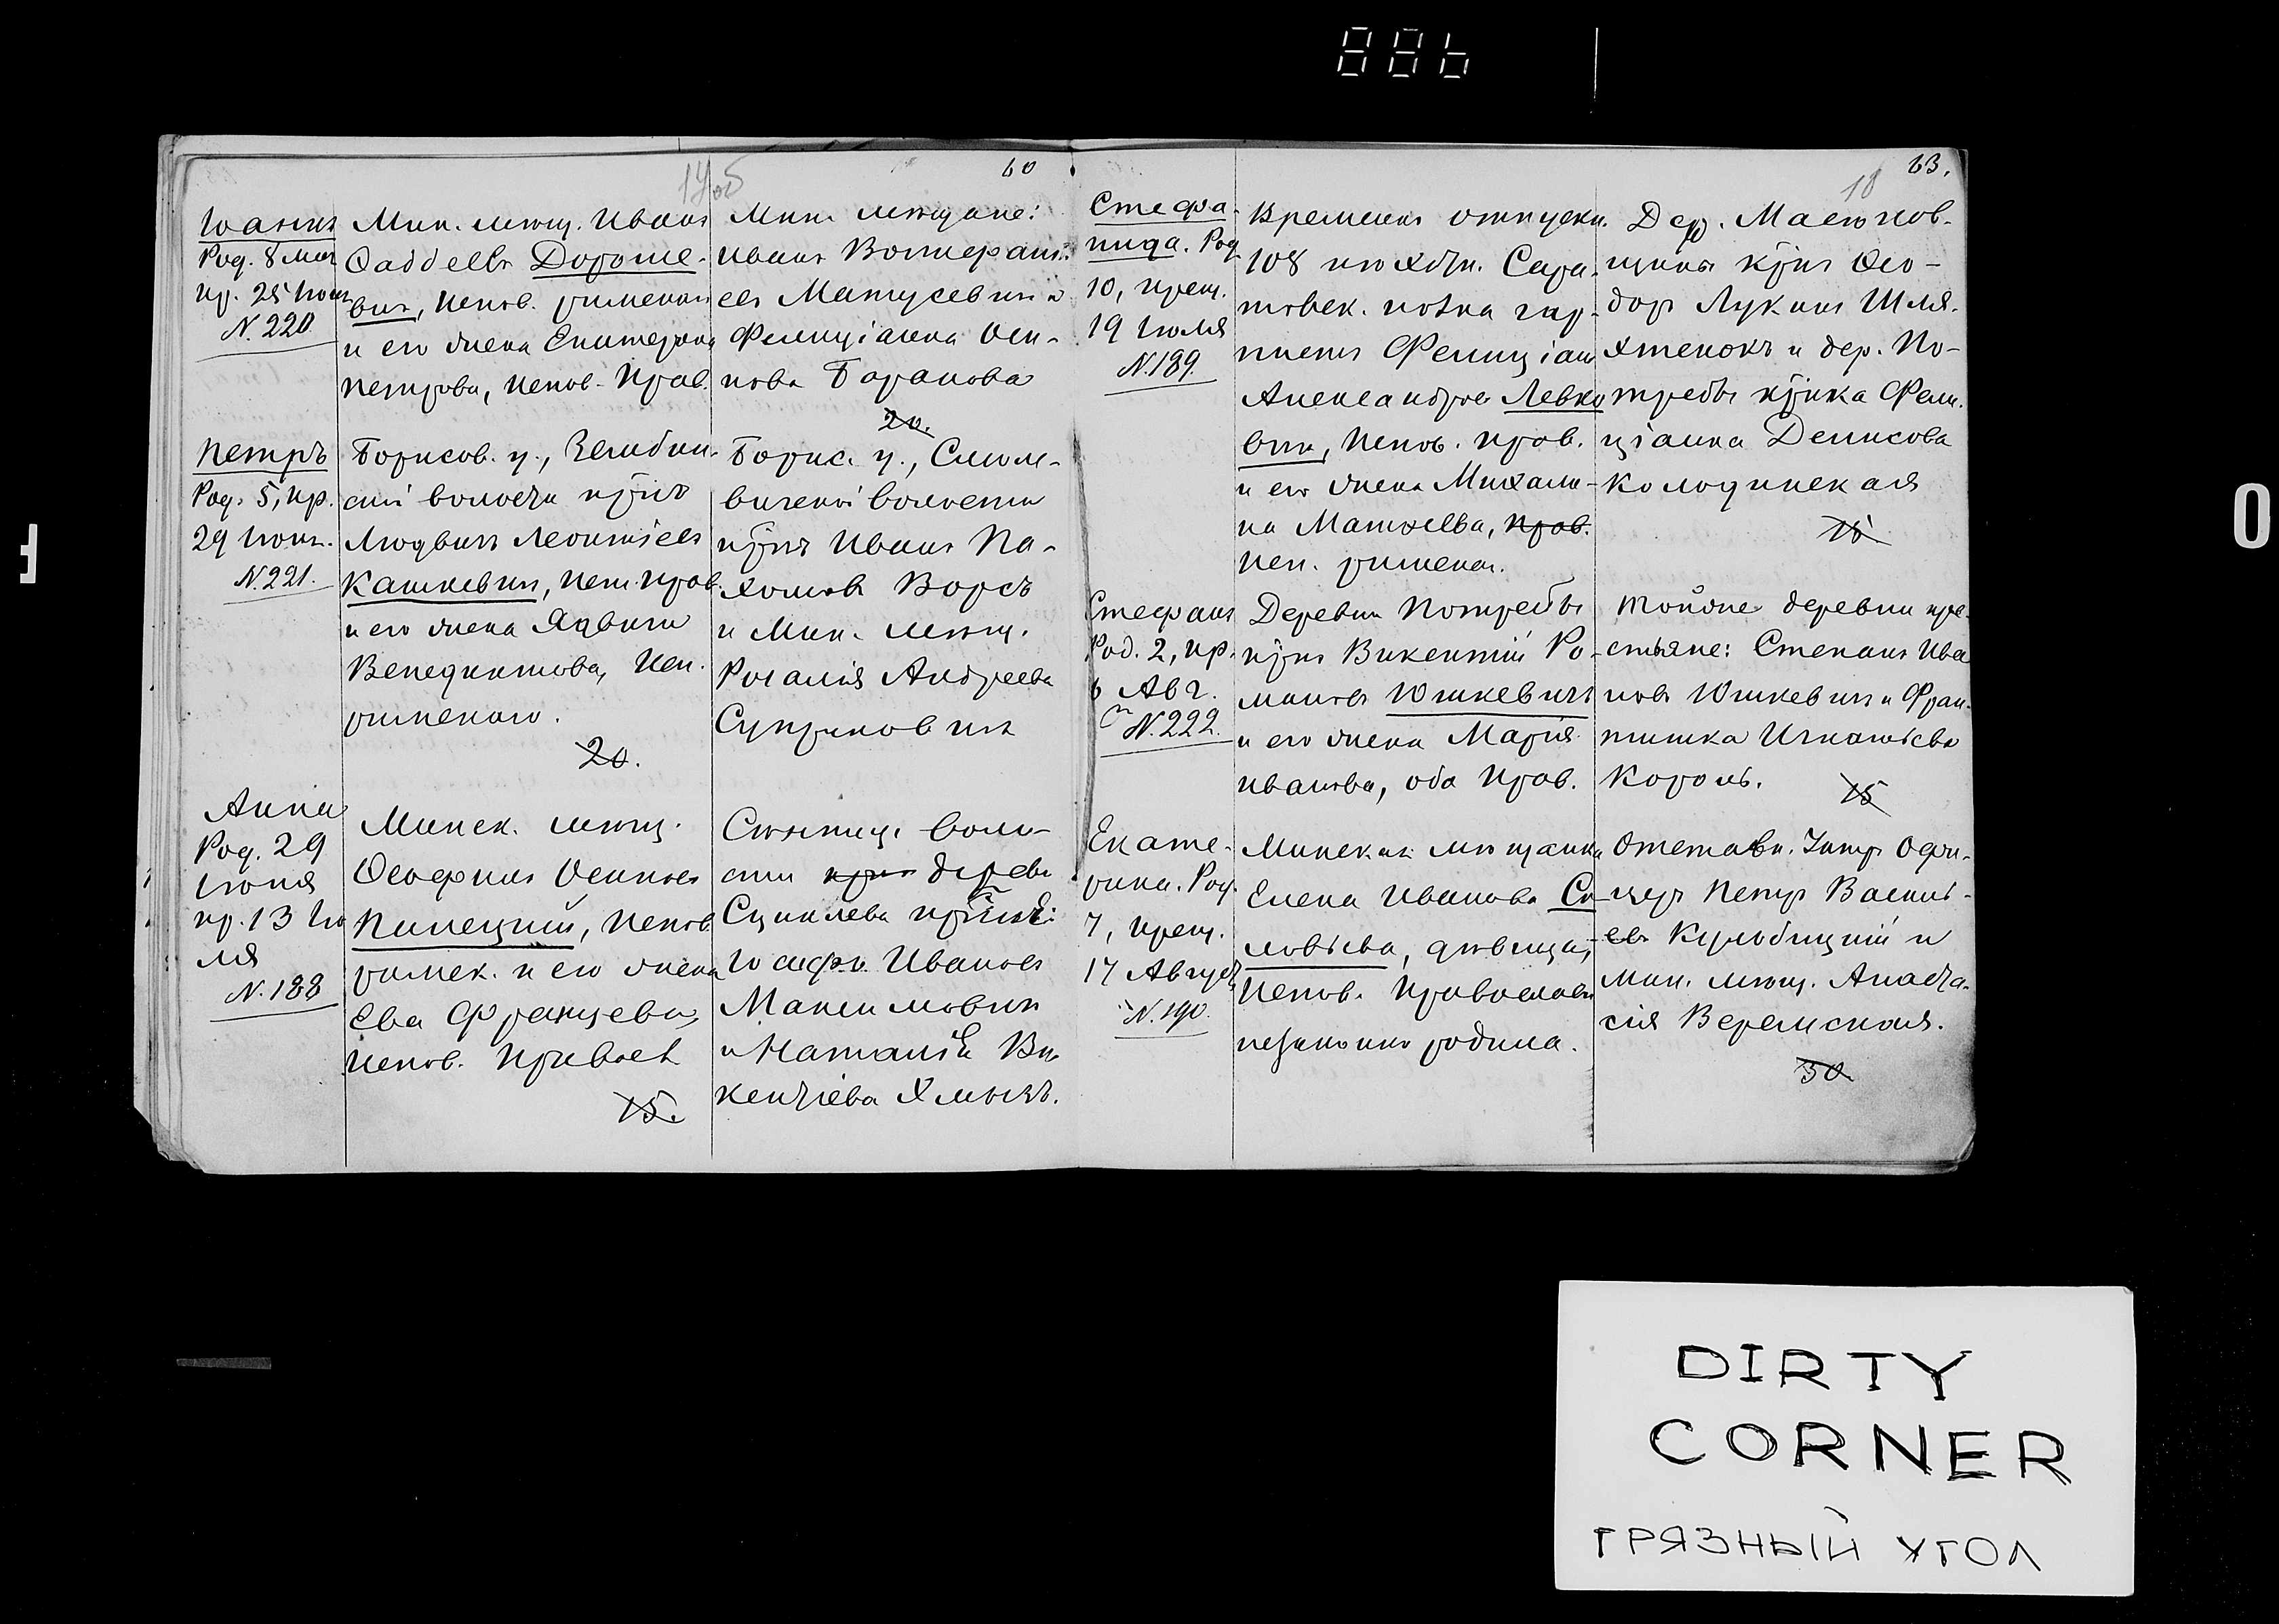 886
60
Іоаннъ
Род. 8 Мая
кр. 25 Іюн
N. 220
Мин. мѣщ. Иванъ
Ѳаддеевъ Дороше-
вичъ, испов. римскаго
и его жена Екатерина
Петрова, испов. Прав.
Мин. мѣщане:
Иванъ
евъ Матусевичъ и
Фелиціанна Оси-
пова Баранова
20.
Петръ
Род. 5, кр.
29 Іюн.
N. 221.
Борисов. у., Зембин-
ской волости кр-нъ
Людвигъ Леонтіевъ
Кашкевичъ, исп. прав.
и его жена Ядвига
Венедиктова, исп.
римскаго.
20.
Борис. у., Смоле-
вичской волости
кр-нъ Иванъ Па-
хомовъ Ворсъ
и Мин. мѣщ.
Розалія Андреева
Суприновичъ
Анна
Род. 29
Іюня
кр. 13 Ію
ля
N. 188
Минск. мѣщ.
Ѳеофилъ Осиповъ
Пилецкій, испов.
римск. и его жена
Ева Францева,
испов. Правосл
15.
волo-
сти деревн
Іосифъ Ивановъ
Максимовичъ
и Наталія Ви
кентіева Хмызъ.
63.
18
Стефа-
нида. Род.
10, крещ.
19 Іюля
N. 189.
Временно отпускн.
108 пѣхотн. Сара-
товск. полка
Фелиціан
Александровъ Левко
вичъ, испов. прав.
и его жена Михали-
на Матвеева, прав.
исп. римскаго.
Дер. Масюков-
щины кр-нъ Ѳео-
доръ Лукинъ Шля-
хтенокъ и дер. По-
требы кр-нка Фели-
ціанна Денисова
Колодинская
15
Стефанъ
Род. 2, кр.
6 Авг.
N. 222.
Деревни Потребы
кр-нъ Викентій Ро-
мановъ Юшкевичъ
и его жена Марія
Иванова, оба прав.
Той же деревни кре-
стьяне: Степанъ Ива
новъ Юшкевичъ и Фран-
тишка Игнатьева
Король.
15
Екате-
рина. Род.
7, крещ.
17 Август
N. 190.
Минская мѣщанка
Елена Иванова Со
ловьева, дѣвица,
испов. Православн
незаконно родила.
Отставн. Офи-
церъ Петръ Василь-
евъ и
мин. мѣщ. Анаста-
сія Веремская.
30.
DIRTY
CORNER
ГРЯЗНЫЙ УГОЛ